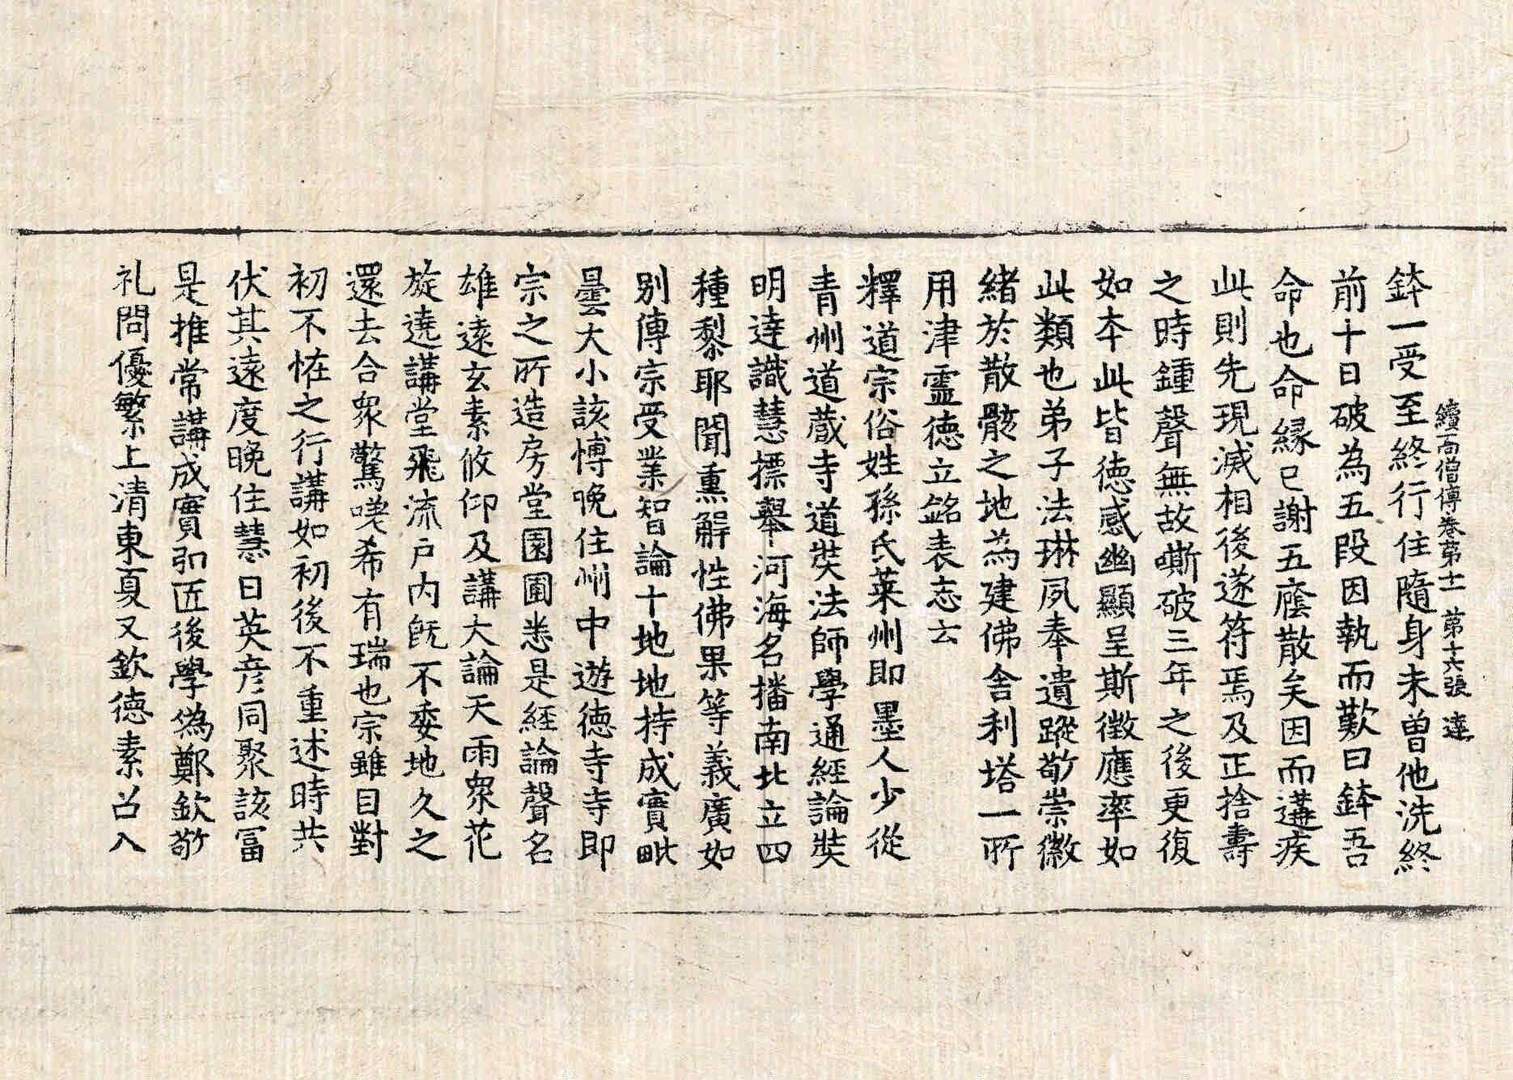 續高僧傳卷第十一 第十六張 達
鉢一受至終行住隨身未曾他洗終
前十日破為五段因執而歎曰鉢吾
命也命緣已謝五陰散矣因而遘疾
此則先現滅相後遂符焉及正捨壽
之時鍾聲無故嘶破三年之後更復
如本此皆徳感幽顯呈斯徵應率如
此類也弟子法琳夙奉遺蹤敬崇徽
緒於散骸之地為建佛舍利塔一所
用津靈徳立銘表志云
釋道宗俗姓孫氏萊州即墨人少從
青州道藏寺道奘法師學通經論奘
明達識慧標舉河海名播南北立四
種黎耶聞熏解性佛果等義廣如
別傳宗受業智論十地地持成實毗
曇大小該愽晚住州中遊徳寺寺即
宗之所造房堂園圃悉是經論聲名
雄遠玄素攸仰及講大論天雨眾花
旋遶講堂飛流户内旣不委地久之
還去合眾驚嗟希有瑞也宗雖目對
初不怪之行講如初後不重述時共
伏其遠度晚住慧日英彦同聚該冨
是推常講成實弘匠後學偽鄭欽敬
礼問優繁上清東夏又欽徳素召入